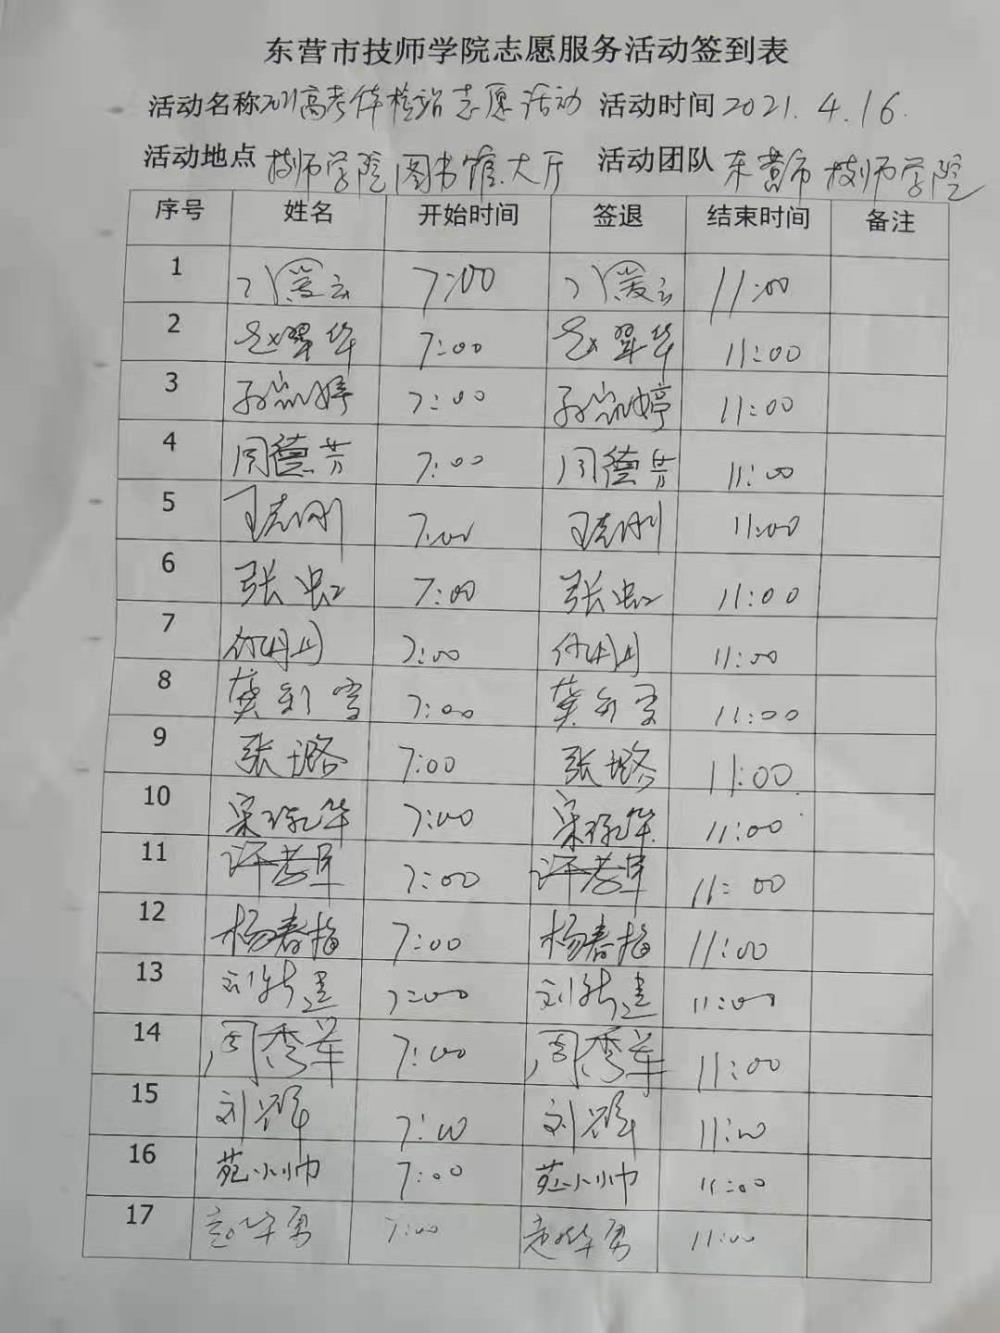 东营市技师学院志愿服务活动签到表
活动名称2021高考体检站志愿活动 活动时间2021.4.16.
活动地点 技师学院图书馆大厅 活动团队 东营市技师学院
序号 姓名 开始时间 签退 结束时间 备注
1 7:00 11:00
2 赵翠华 7:00 赵翠华 11:00
3 孙凯婷 7:00 孙凯婷 11:00
4 周德芳 7:00 周德芳 11:00
5 王志刚 7:00 王志刚 11:00
6 张虹 7:00 张虹 11:00
7 付明月 7:00 付明月 11:00
8 7:00 11:00
9 张璐 7:00 张璐 11:00
10 7:00 11:00
11 许孝军 7:00 许孝军 11:00
12 杨春梅 7:00 杨春梅 11:00
13 刘新建 7:00 刘新建 11:00
14 周秀军 7:00 周秀军 11:00
15 7:00 11:00
16 苑小帅 7:00 苑小帅 11:00
17 赵华勇 7:00 赵华勇 11:00